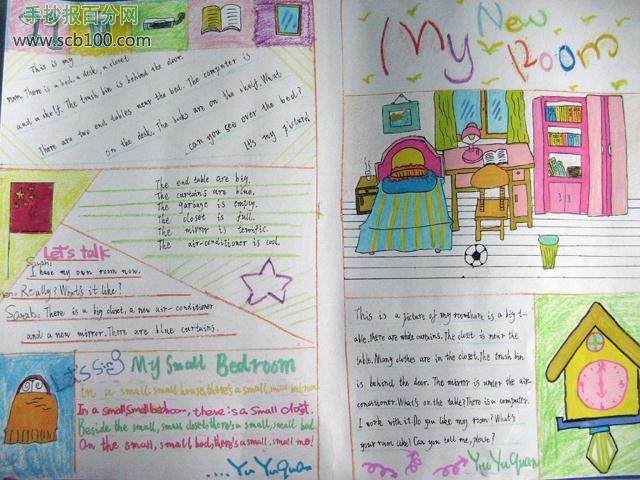 手抄报百分网
www.scb100.com
This is my
room. There is a bed, a desk, a closet
and a shelf. The trash bin is behind the door. The computer is
on the desk. The books are on the shelf. What
There are two end tables near the bed.
can you see over the bed?
It's my picture
The end table are big.
The curtains are blue.
The garbage is empty.
The closet is full.
The mirror is terrific.
The air-conditioner is cool.
Let's talk
Sarah:
I have my own room now.
Really? What's it like?
Sarah: There is a big closet, a new air-conditioner
and a new mirror. There are blue curtains.
Let's sing
My Small Bedroom
In a small, small house, there's a small, small bedroom
In a small, small bedroom, there is a small closet.
Beside the small, small closet, there's a small, small bed.
On the small, small bed, there's a small, small me!
....Yu YuQuan
My New
Room
This is a picture of my room. there is a big t-
able. there are white curtains. The closet is near the
table. Many clothes are in the closet. The trash bin
is behind the door. The mirror is under the air-
conditioner. What's on the table? There is a computer.
I work with it. Do you like my room? What's
your room like? Can you tell me, please?
Yu YuQuan